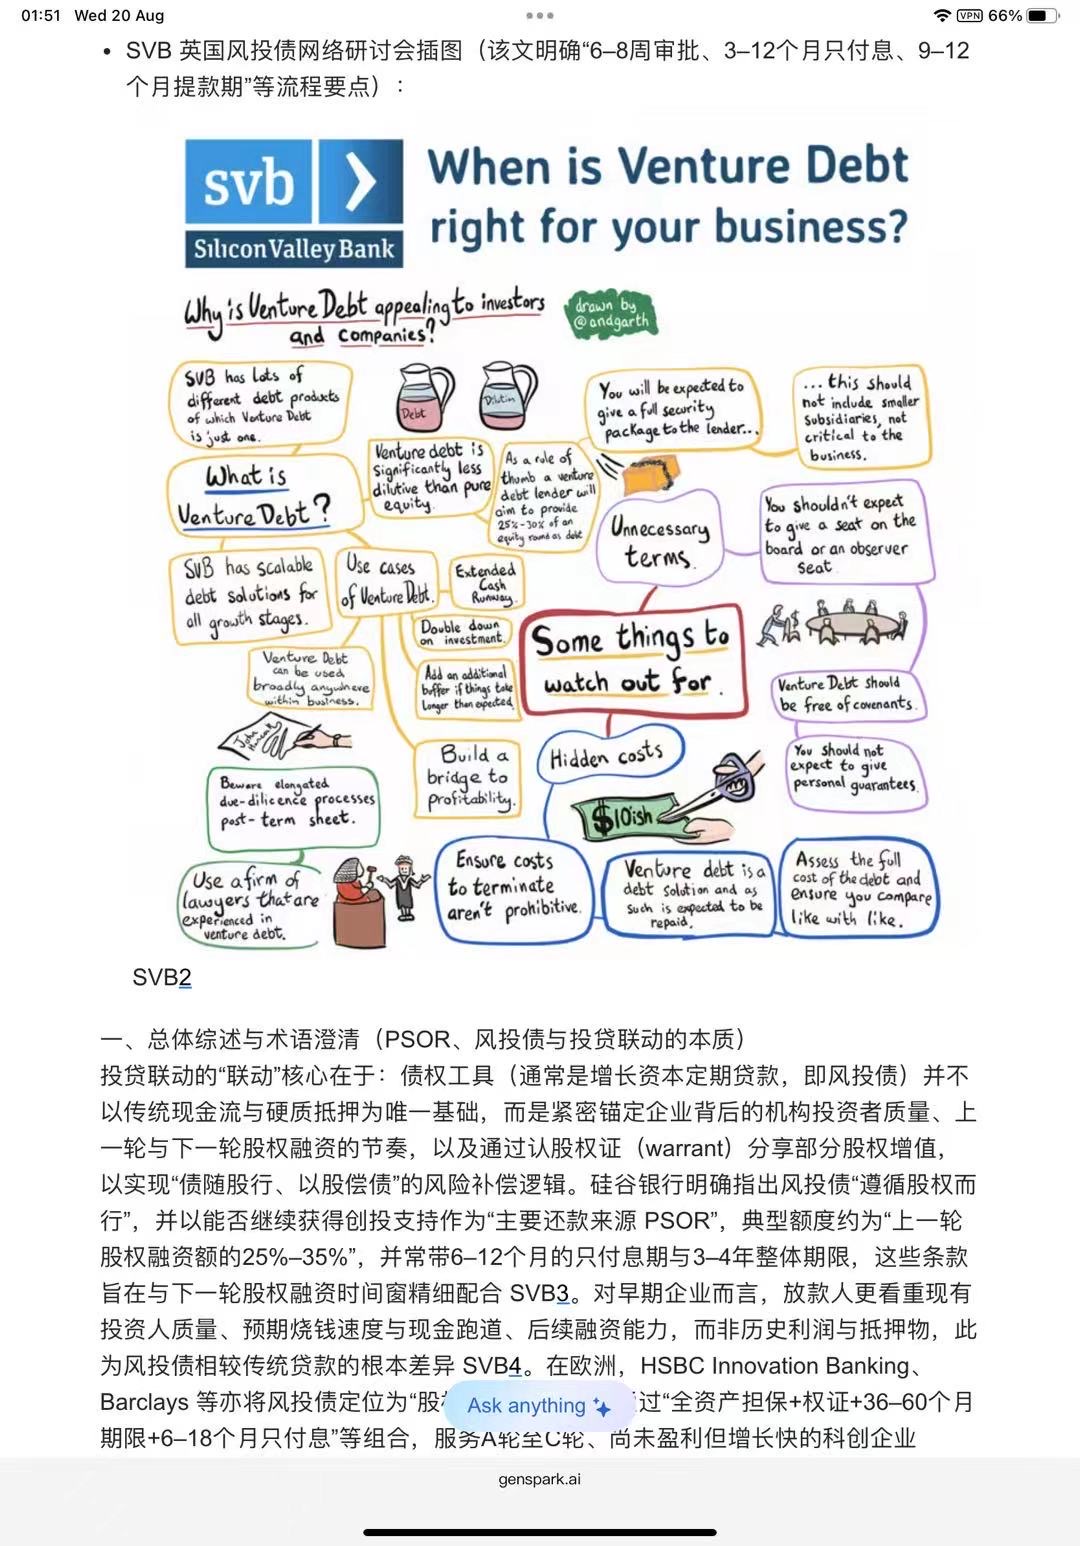 01:51 Wed 20 Aug
VPN 66%
• SVB 英国风投债网络研讨会插图（该文明确“6–8周审批、3–12个月只付息、9–12
个月提款期”等流程要点）:
svb
Silicon Valley Bank
When is Venture Debt
right for your business?
Why is Venture Debt appealing to investors
and companies?
drawn by
@andgarth
SVB has lots of
different debt products
of which Venture Debt
is just one.
Debt
Dilutin
You will be expected to
give a full security
package to the lender...
...this should
not include smaller
subsidiaries, not
critical to the
business.
What is
Venture Debt?
Venture debt is
significantly less
dilutive than pure
equity.
As a rule of
thumb a venture
debt lender will
aim to provide
25%-30% of an
equity round as debt
Unnecessary
terms.
You shouldn't expect
to give a seat on the
board or an observer
seat.
SVB has scalable
debt solutions for
all growth stages.
Use cases
of Venture Debt.
Extended
Cash
Runway.
Double down
on investment.
Some things to
watch out for.
Venture Debt
can be used
broadly anywhere
within business.
Add an additional
buffer if things take
longer than expected.
Venture Debt should
be free of covenants.
Build a
bridge to
profitability.
Hidden costs
You should not
expect to give
personal guarantees.
Beware elongated
due-dilicence processes
post-term sheet.
$10ish
Use a firm of
lawyers that are
experienced in
venture debt.
Ensure costs
to terminate
aren't prohibitive.
Venture debt is a
debt solution and as
such is expected to be
repaid.
Assess the full
cost of the debt and
ensure you compare
like with like.
SVB2
一、总体综述与术语澄清（PSOR、风投债与投贷联动的本质）
投贷联动的“联动”核心在于：债权工具（通常是增长资本定期贷款，即风投债）并不
以传统现金流与硬质抵押为唯一基础，而是紧密锚定企业背后的机构投资者质量、上
一轮与下一轮股权融资的节奏，以及通过认股权证（warrant）分享部分股权增值，
以实现“债随股行、以股偿债”的风险补偿逻辑。硅谷银行明确指出风投债“遵循股权而
行”，并以能否继续获得创投支持作为“主要还款来源 PSOR”，典型额度约为“上一轮
股权融资额的25%–35%”，并常带6–12个月的只付息期与3–4年整体期限，这些条款
旨在与下一轮股权融资时间窗精细配合 SVB3。对早期企业而言，放款人更看重现有
投资人质量、预期烧钱速度与现金跑道、后续融资能力，而非历史利润与抵押物，此
为风投债相较传统贷款的根本差异 SVB4。在欧洲，HSBC Innovation Banking、
Barclays 等亦将风投债定位为“股 Ask anything 过“全资产担保+权证+36–60个月
期限+6–18个月只付息”等组合，服务A轮至C轮、尚未盈利但增长快的科创企业
genspark.ai